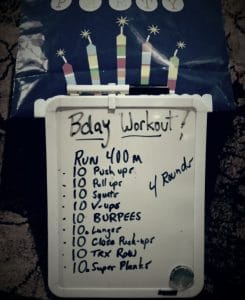 PARTY
Bday Workout!
RUN 400 m
10 Push ups
10 Pull ups
10 Squats
10 V-ups
10 BURPEES
10 Lunges
10 Close Push-ups
10 TRX Row
10 Super Planks
4 Rounds